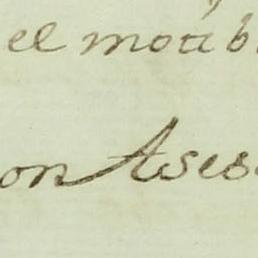 el motib
on Ases